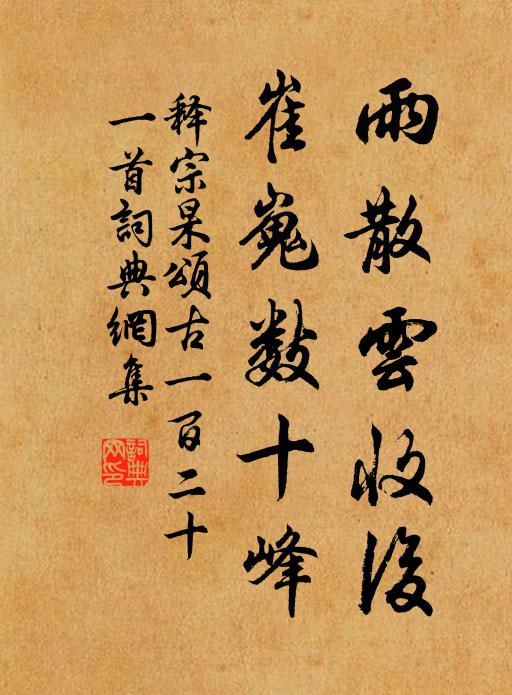 雨散雲收後
崔嵬數十峰
释宗杲頌古一百二十
一首詞典網集
詞典网印